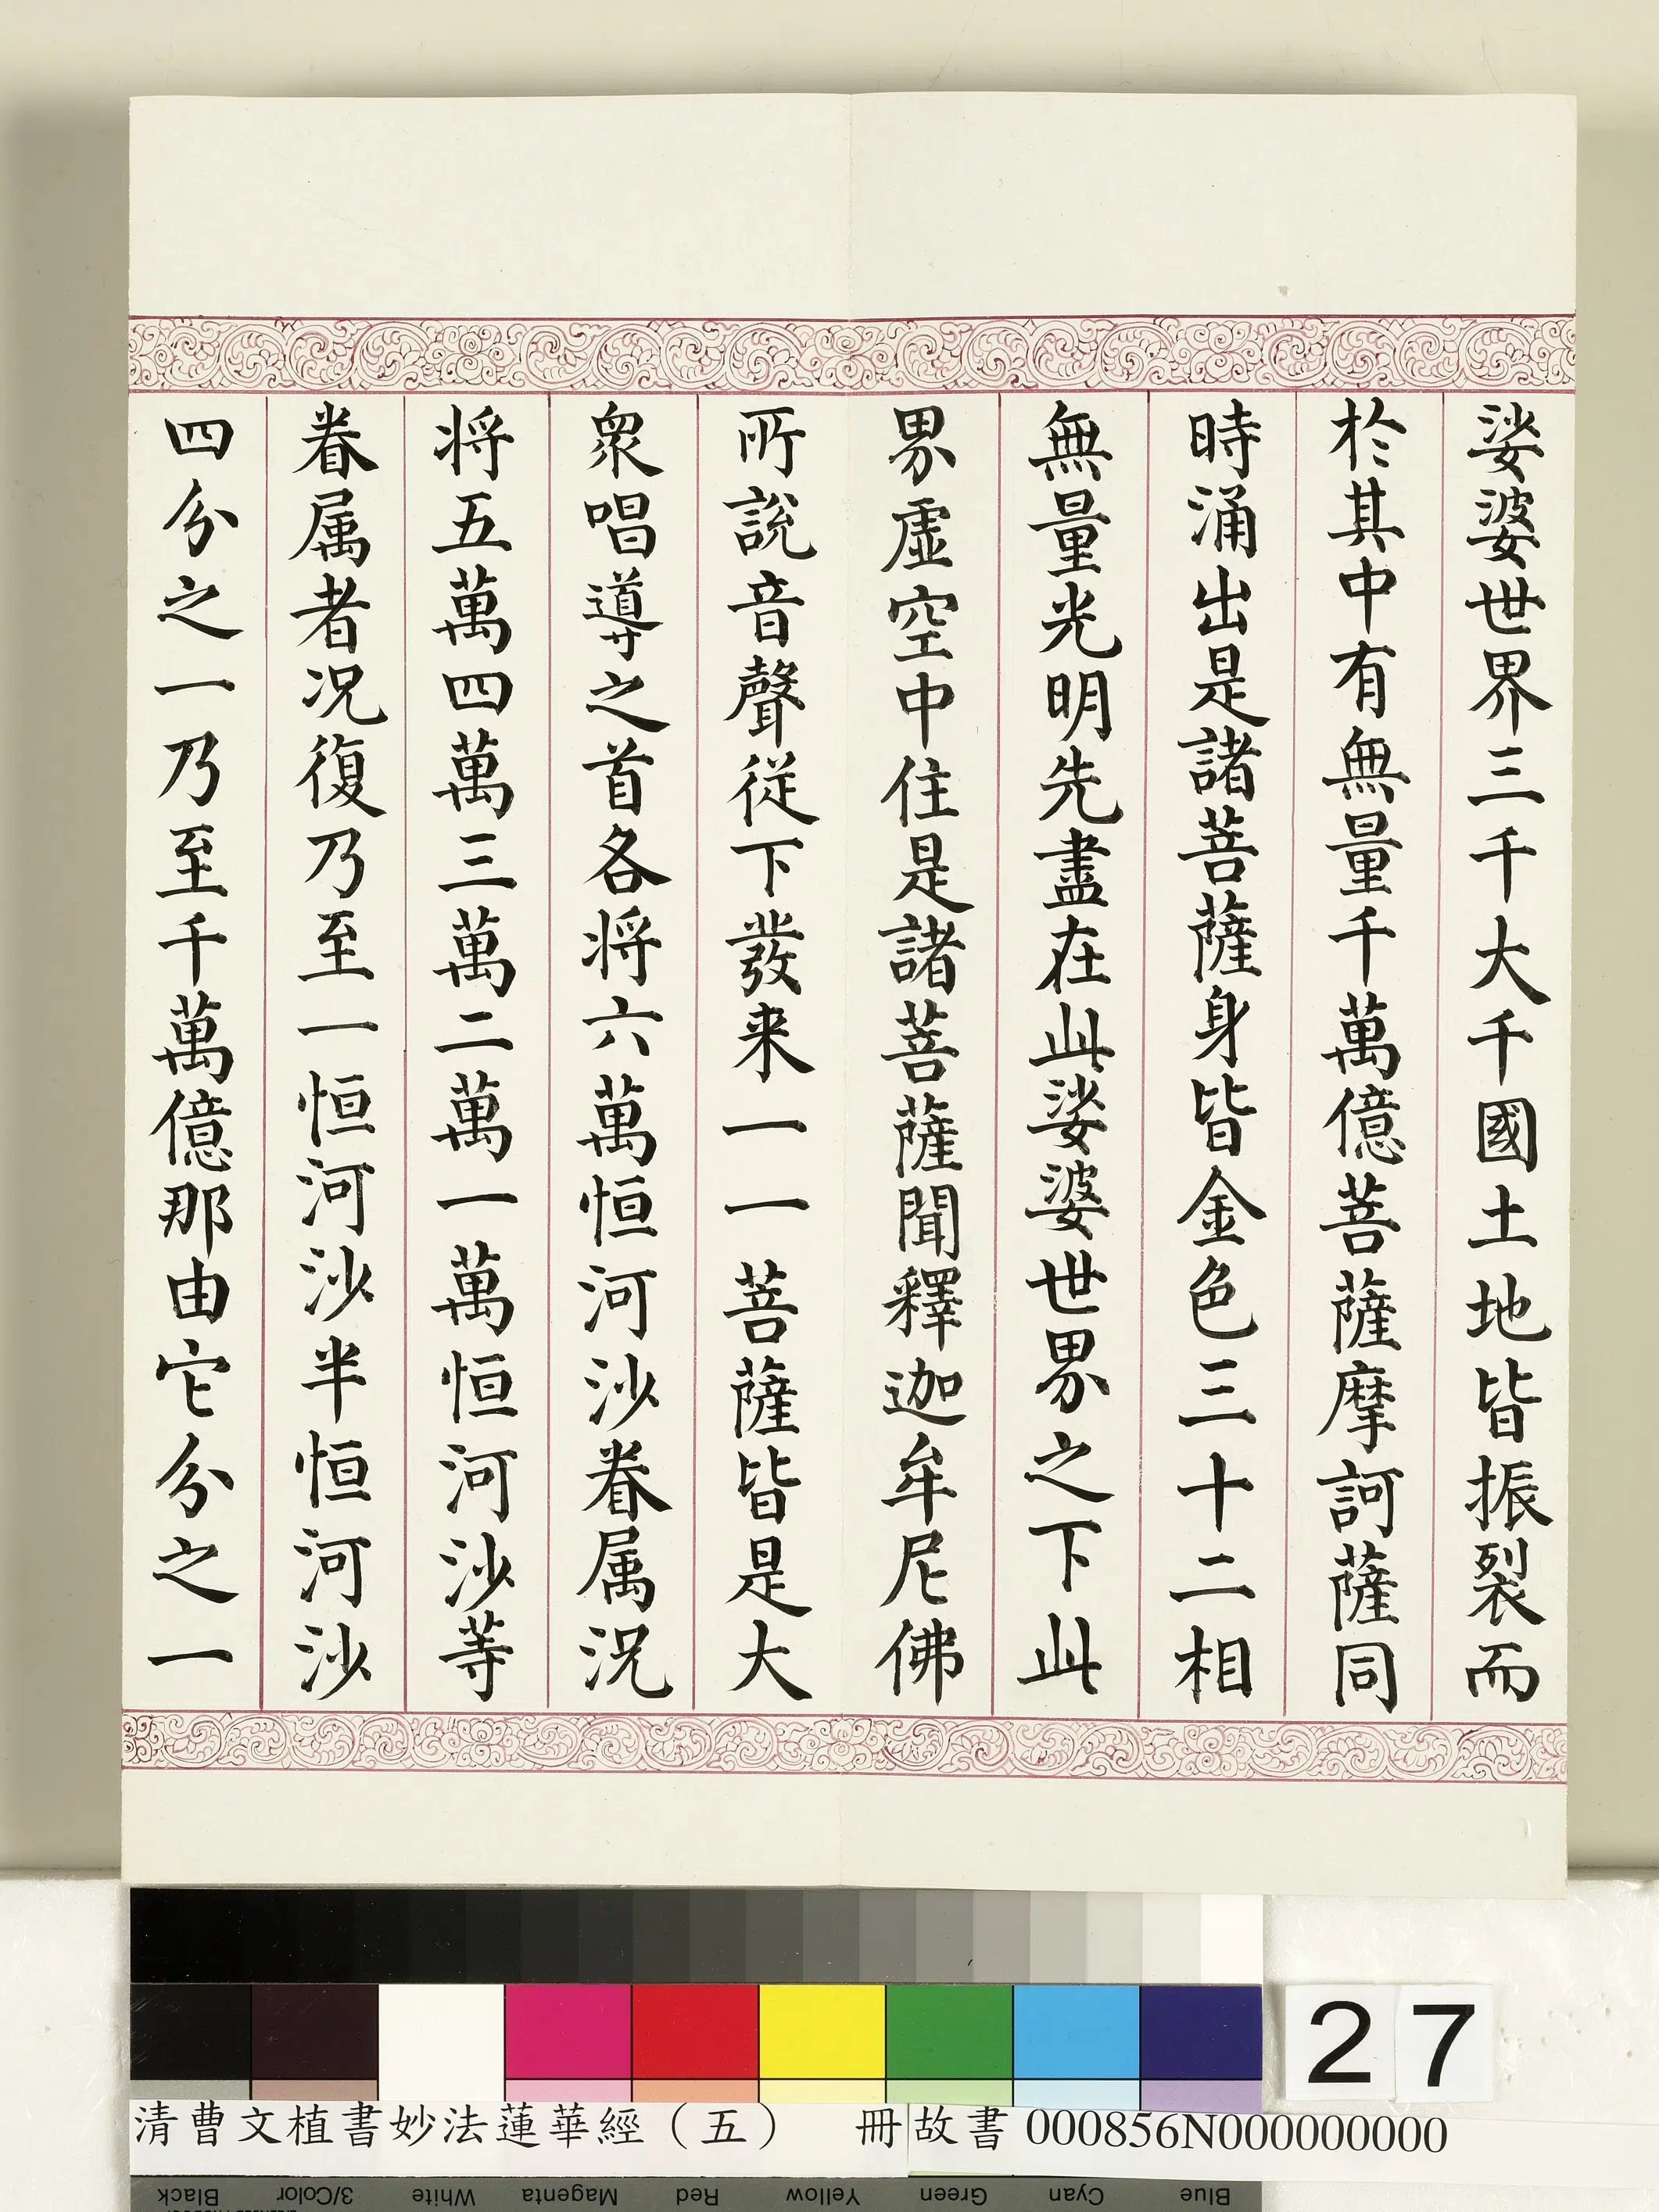 娑婆世界三千大千國土地皆振裂而
於其中有無量千萬億菩薩摩訶薩同
時涌出是諸菩薩身皆金色三十二相
無量光明先盡在此娑婆世界之下此
界虛空中住是諸菩薩聞釋迦牟尼佛
所說音聲從下發来一一菩薩皆是大
眾唱導之首各将六萬恒河沙眷属況
将五萬四萬三萬二萬一萬恒河沙等
眷属者况復乃至一恒河沙半恒河沙
四分之一乃至千萬億那由它分之一
27
清曹文植書妙法蓮華經（五） 冊 故書 000856N000000000
Black 3/Color White Magenta Red Yellow Green Cyan Blue